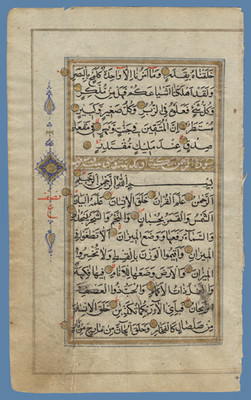 خَلَقْنَاهُ بِقَدَرٍ وَمَا أَمْرُنَا إِلَّا وَاحِدَةٌ كَلَمْحٍ بِالْبَصَرِ
وَلَقَدْ أَهْلَكْنَا أَشْيَاعَكُمْ فَهَلْ مِنْ مُدَّكِرٍ
وَكُلُّ شَيْءٍ فَعَلُوهُ فِي الزُّبُرِ وَكُلُّ صَغِيرٍ وَكَبِيرٍ
مُسْتَطَرٌ إِنَّ الْمُتَّقِينَ فِي جَنَّاتٍ وَنَهَرٍ فِي مَقْعَدِ
صِدْقٍ عِنْدَ مَلِيكٍ مُقْتَدِرٍ
سورة الرحمن
بِسْمِ اللَّهِ الرَّحْمَنِ الرَّحِيمِ
الرَّحْمَنُ عَلَّمَ الْقُرْآنَ خَلَقَ الْإِنْسَانَ عَلَّمَهُ الْبَيَانَ
الشَّمْسُ وَالْقَمَرُ بِحُسْبَانٍ وَالنَّجْمُ وَالشَّجَرُ يَسْجُدَانِ
وَالسَّمَاءَ رَفَعَهَا وَوَضَعَ الْمِيزَانَ أَلَّا تَطْغَوْا فِي
الْمِيزَانِ وَأَقِيمُوا الْوَزْنَ بِالْقِسْطِ وَلَا تُخْسِرُوا
الْمِيزَانَ وَالْأَرْضَ وَضَعَهَا لِلْأَنَامِ فِيهَا فَاكِهَةٌ
وَالنَّخْلُ ذَاتُ الْأَكْمَامِ وَالْحَبُّ ذُو الْعَصْفِ
وَالرَّيْحَانُ فَبِأَيِّ آلَاءِ رَبِّكُمَا تُكَذِّبَانِ خَلَقَ الْإِنْسَانَ
مِنْ صَلْصَالٍ كَالْفَخَّارِ وَخَلَقَ الْجَانَّ مِنْ مَارِجٍ مِنْ